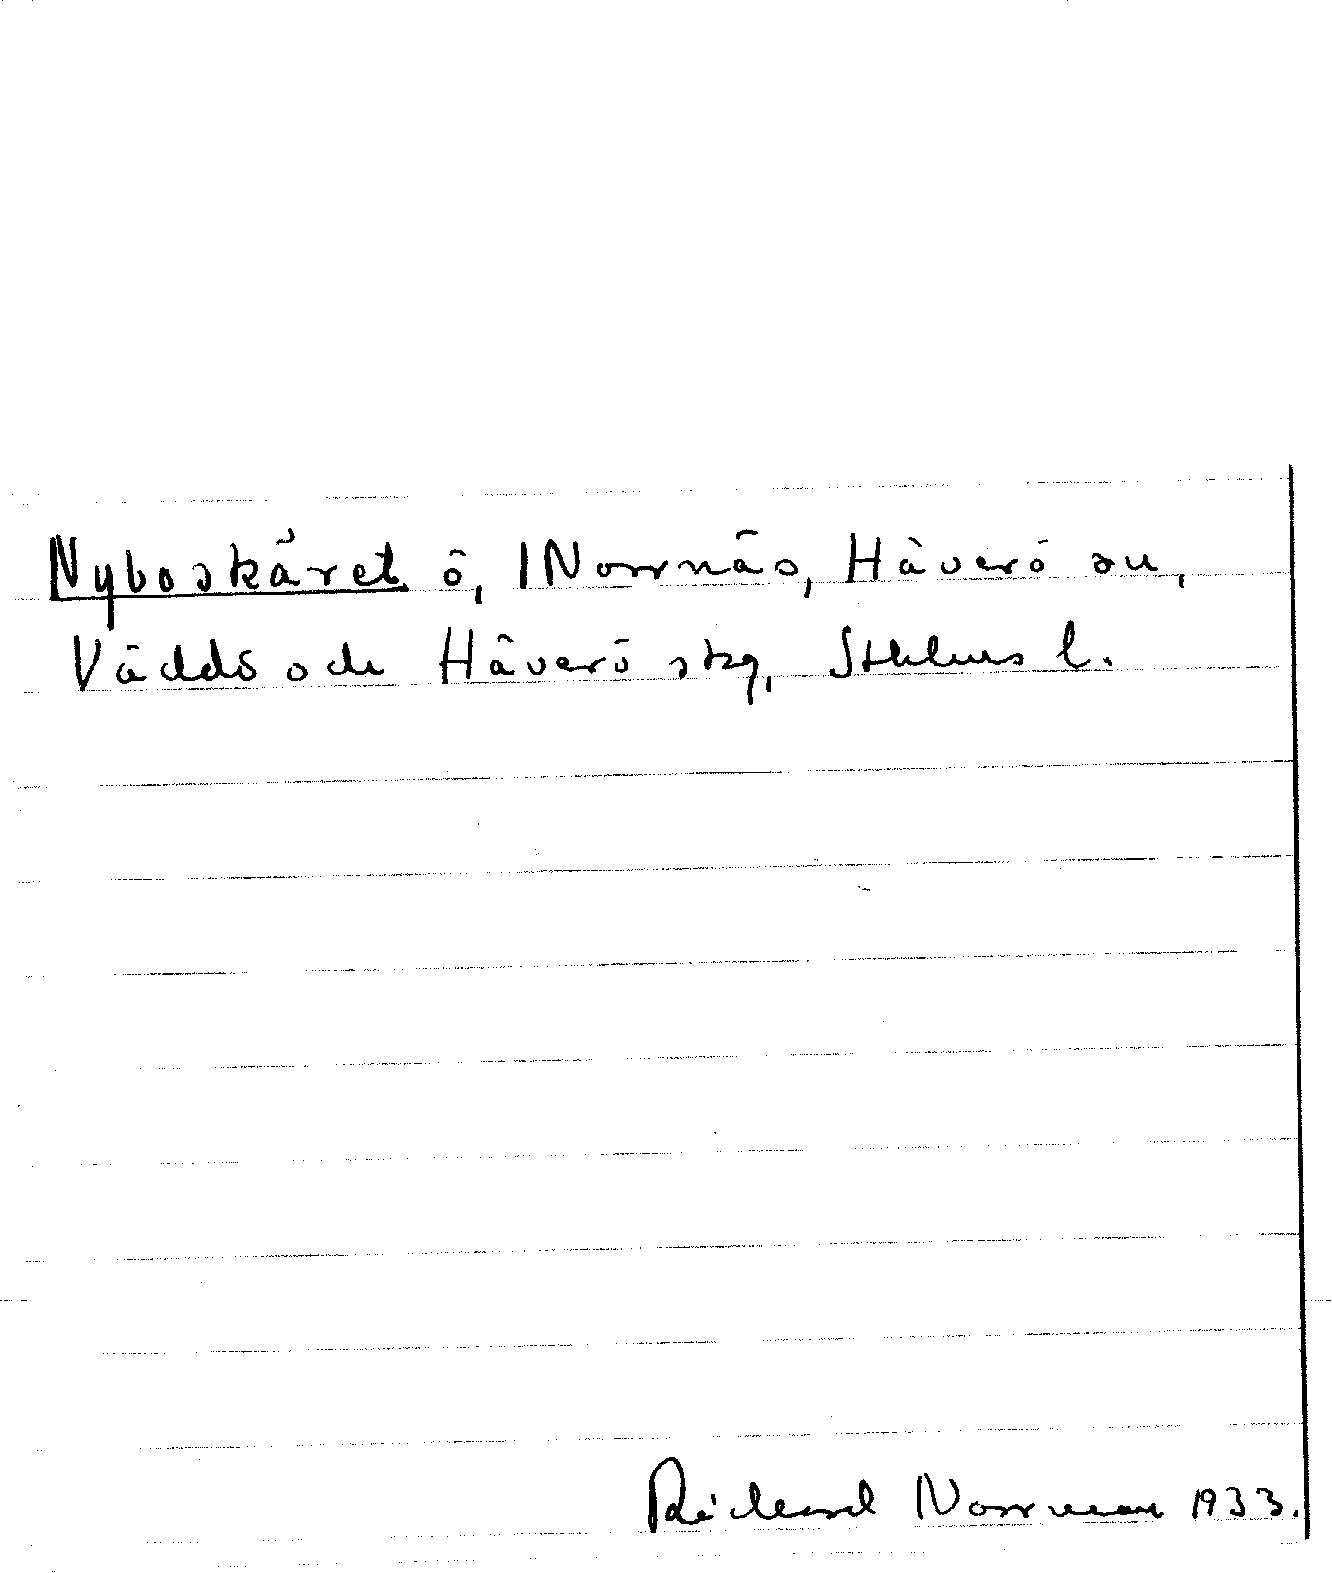 Nyboskäret ö, Norrnäs, Häverö sn,
Väddö och Häverö skg, Sthlms l.
Richard Norrman 1933.